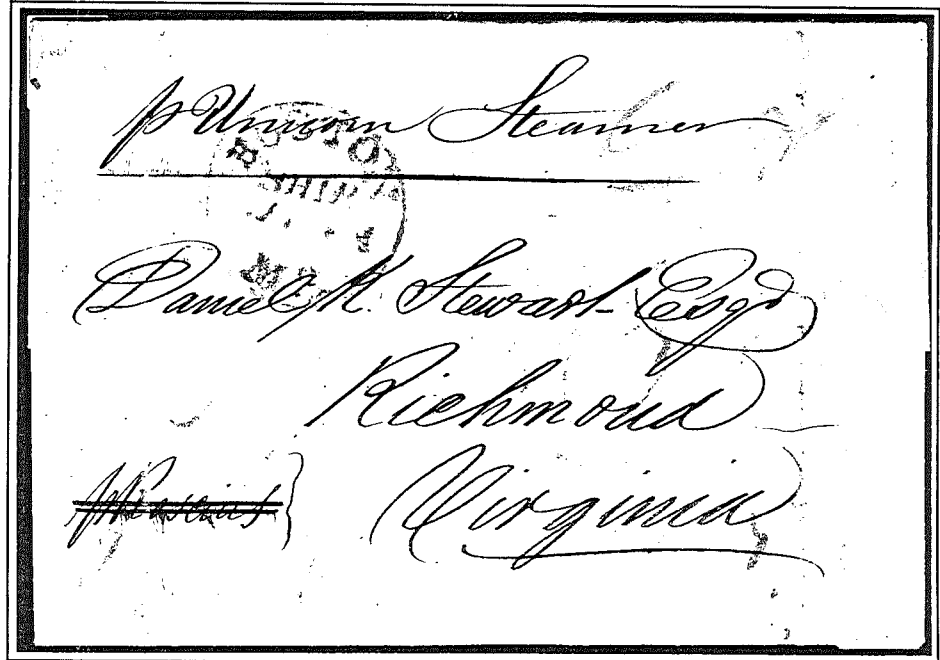 p Unicorn Steamer
BOSTON
SHIP
Daniel K. Stewart Esqr
Richmond
Virginia
p Roscius